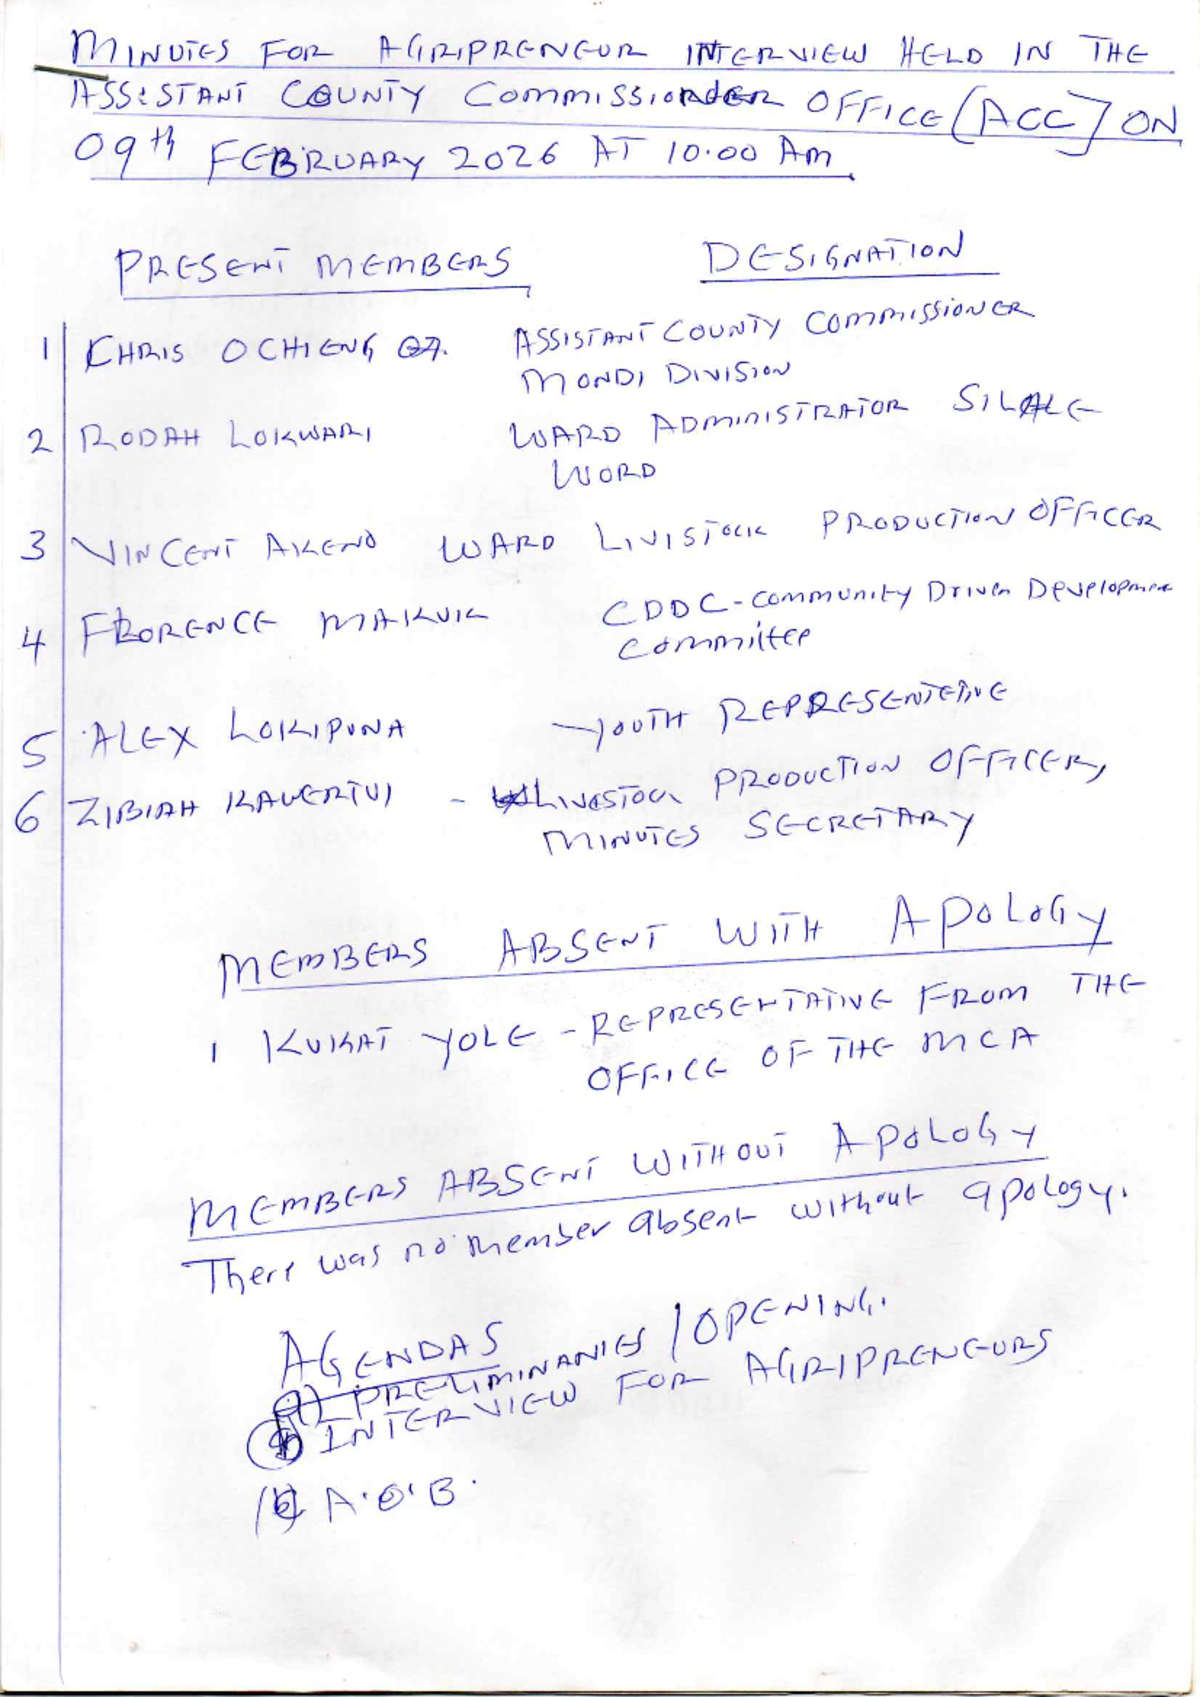 MINUTES FOR AGRIPRENEUR INTERVIEW HELD IN THE
ASSISTANT COUNTY COMMISSIONER OFFICE (ACC) ON
09th FEBRUARY 2026 AT 10.00 Am
PRESENT MEMBERS DESIGNATION
1 CHRIS OCHIENG ASSISTANT COUNTY COMMISSIONER
MONDI DIVISION
2 RODAH LOKWARI WARD ADMINISTRATOR SILALE
WORD
3 VINCENT AKENO WARD LIVISTOCK PRODUCTION OFFICER
4 FLORENCE MAKUK CDDC - Community Driven Development
Committee
5 ALEX LOKIPUNA - YOUTH REPRESENTETIVE
6 ZIBIAH - LIVESTOCK PRODUCTION OFFICER,
MINUTES SECRETARY
MEMBERS ABSENT WITH APOLOGY
1 KUKAT YOLE - REPRESENTATIVE FROM THE
OFFICE OF THE MCA
MEMBERS ABSENT WITHOUT APOLOGY
There was no member absent without apology.
AGENDAS
PRELIMINANIES / OPENING.
INTERVIEW FOR AGRIPRENEURS
A.O.B.